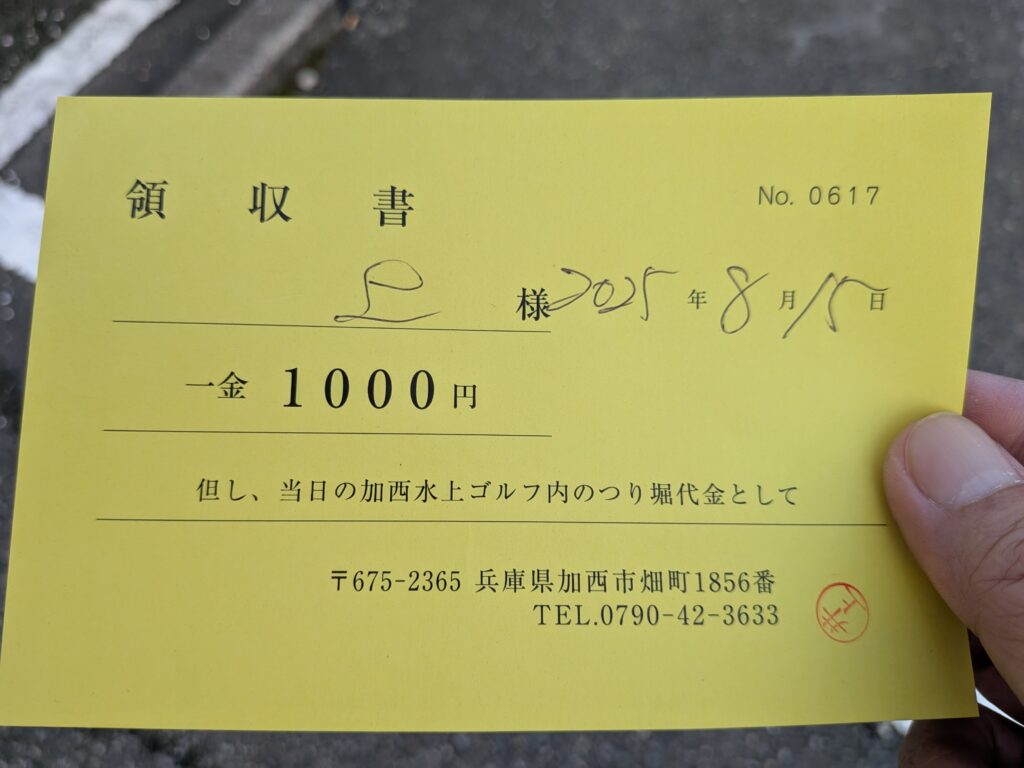 領収書
No. 0617
上 様
2025年8月15日
一金 1000円
但し、当日の加西水上ゴルフ内のつり堀代金として
〒675-2365 兵庫県加西市畑町1856番
TEL.0790-42-3633
井上